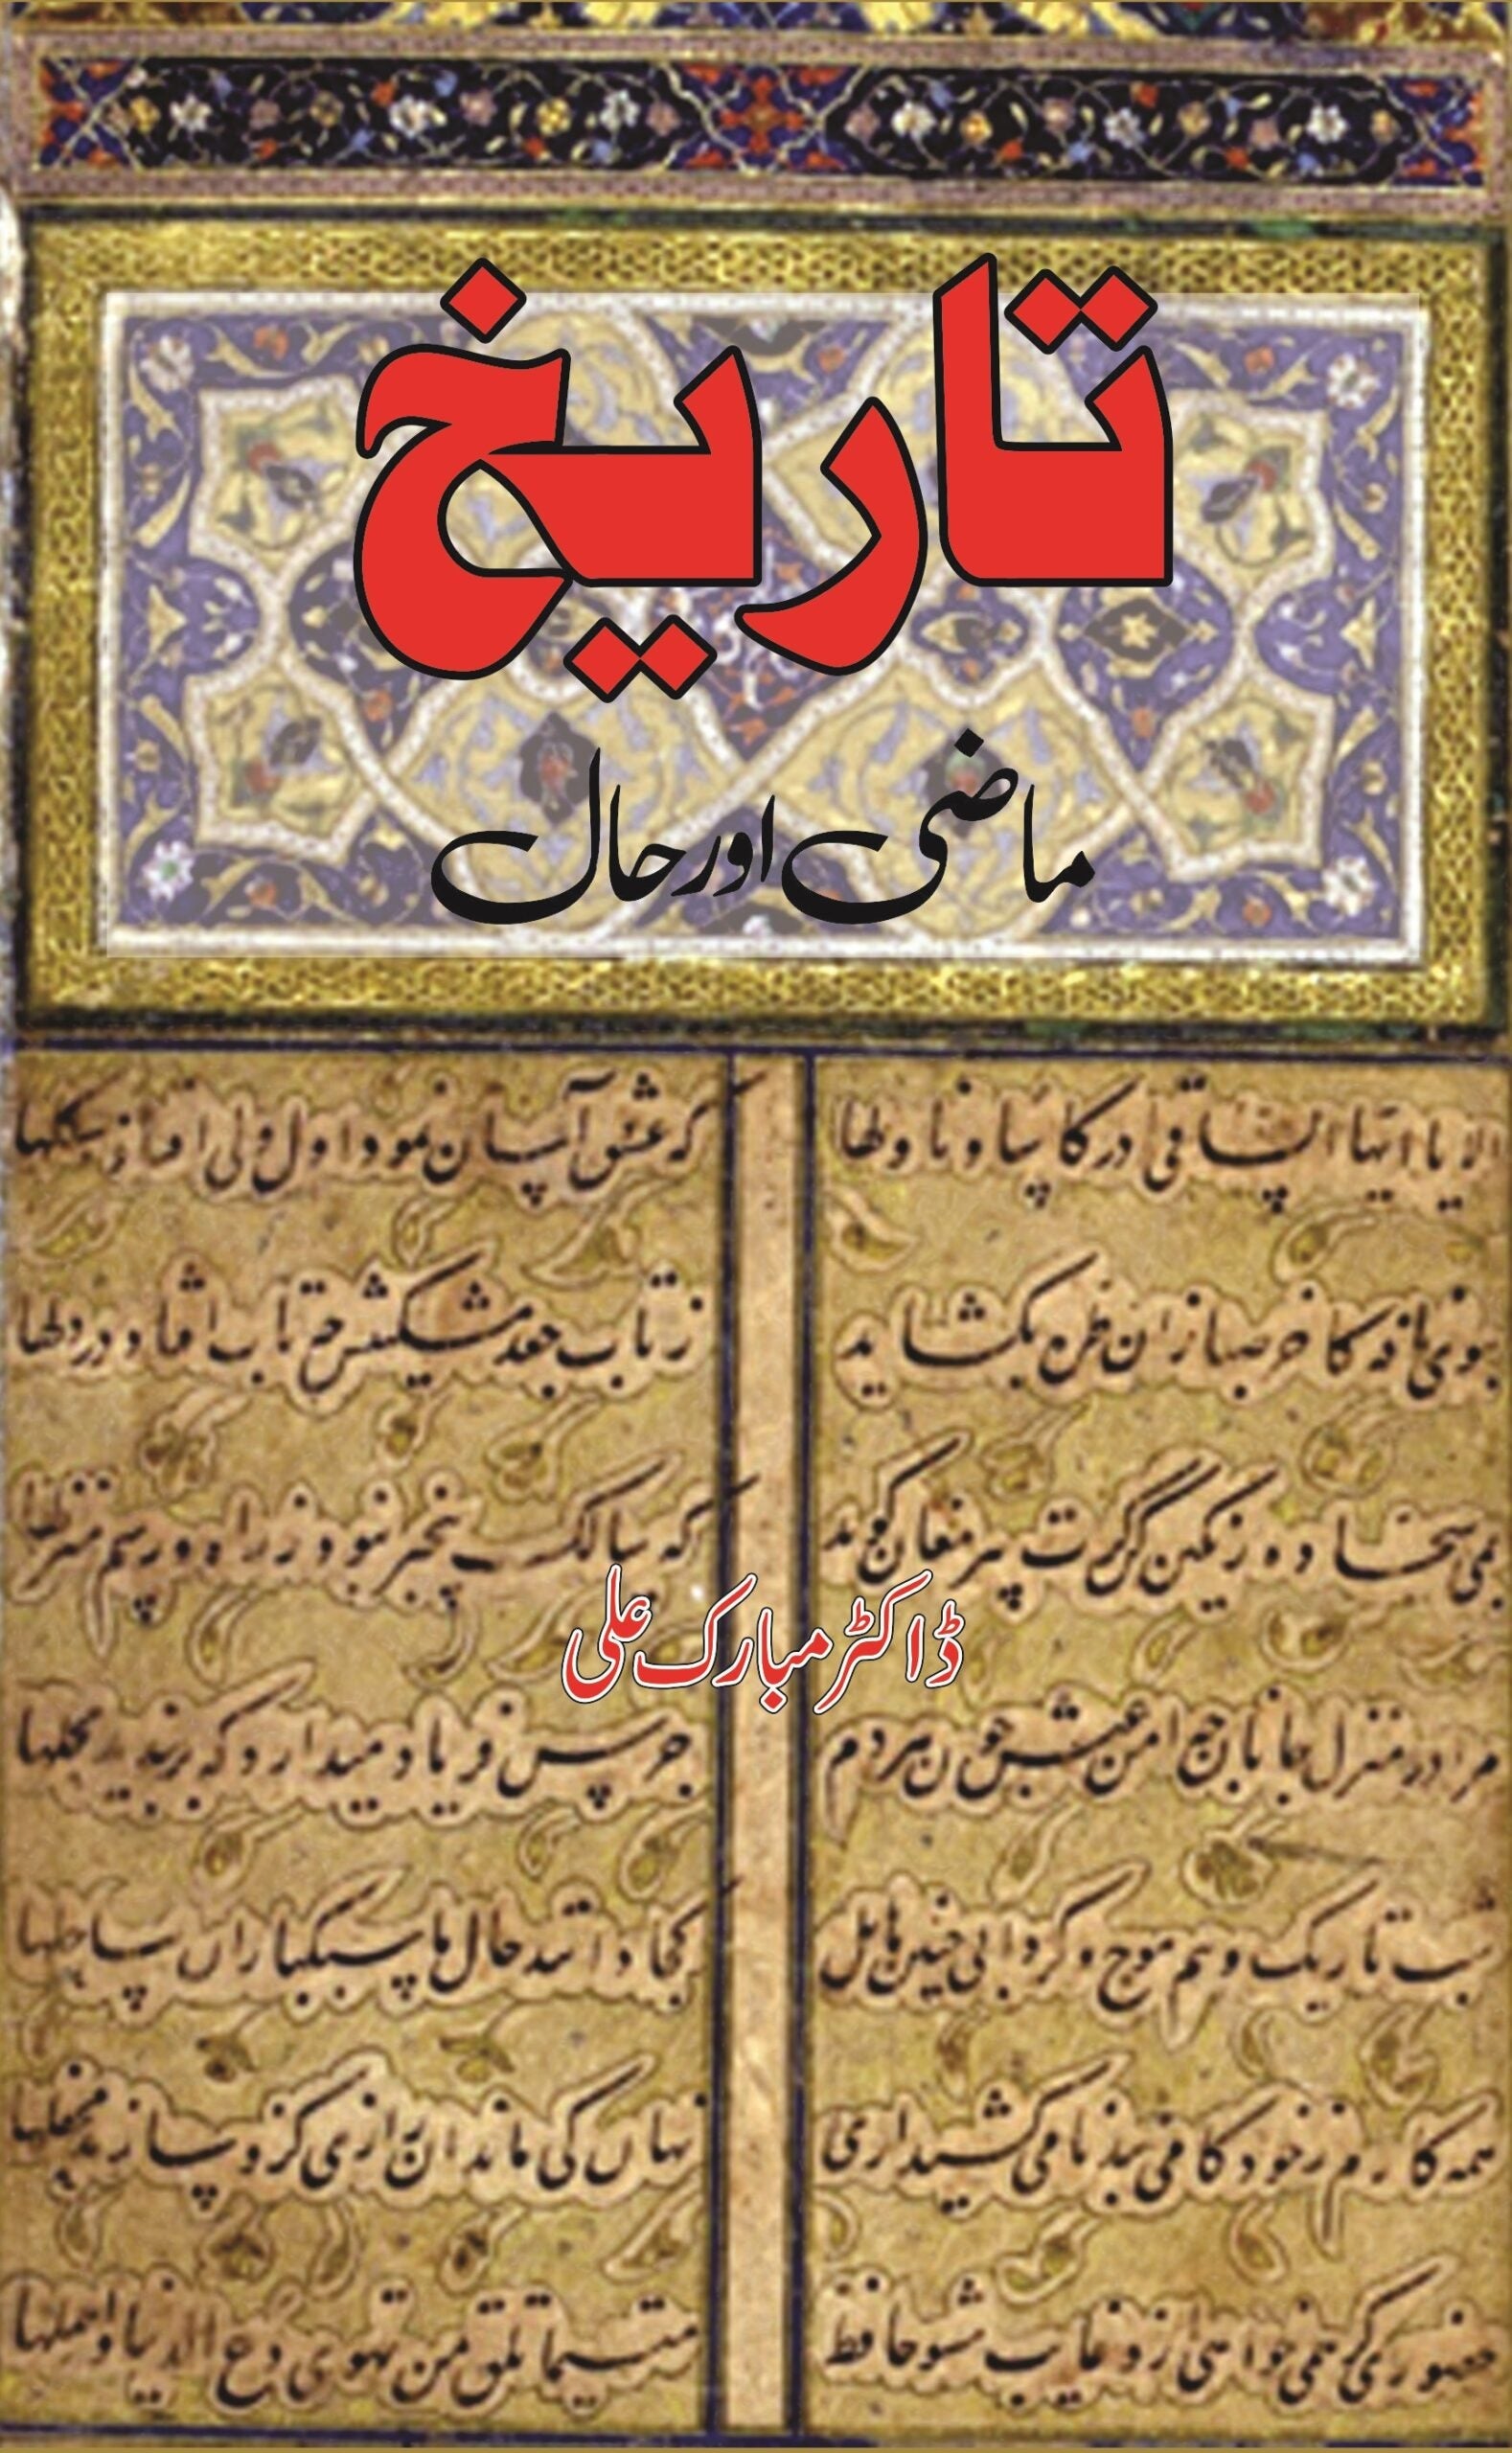 تاریخ
ماضی اور حال
الا یا ایها الساقی ادر کاسا و ناولها
که عشق آسان نمود اول ولی افتاد مشکلها
بوی نافه کاخر صبا زان طره بکشاید
ز تاب جعد مشکینش چه تاب افتاد در دلها
بمی سجاده رنگین کن گرت پیر مغان گوید
که سالک بیخبر نبود ز راه و رسم منزلها
ڈاکٹر مبارک علی
مرا در منزل جانان چه امن عیش چون هردم
جرس فریاد میدارد که بربندید محملها
شب تاریک و بیم موج و گردابی چنین هایل
کجا دانند حال ما سبکباران ساحلها
همه کارم ز خود کامی ببدنامی کشید آری
نهان کی ماند آن رازی کزو سازند محفلها
حضوری گر همی خواهی ازو غایب مشو حافظ
متی ما تلق من تهوی دع الدنیا و اهملها